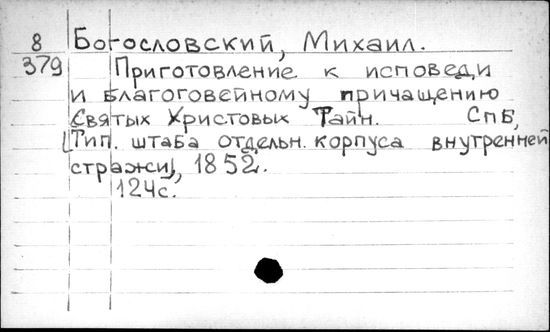 8 Богословский, Михаил.
379 Приготовление к исповеди
и благоговейному причащению
Святых Христовых Тайн. СПБ,
[Тип. штаба отдельн. корпуса внутренней
стражи], 1852.
124с.